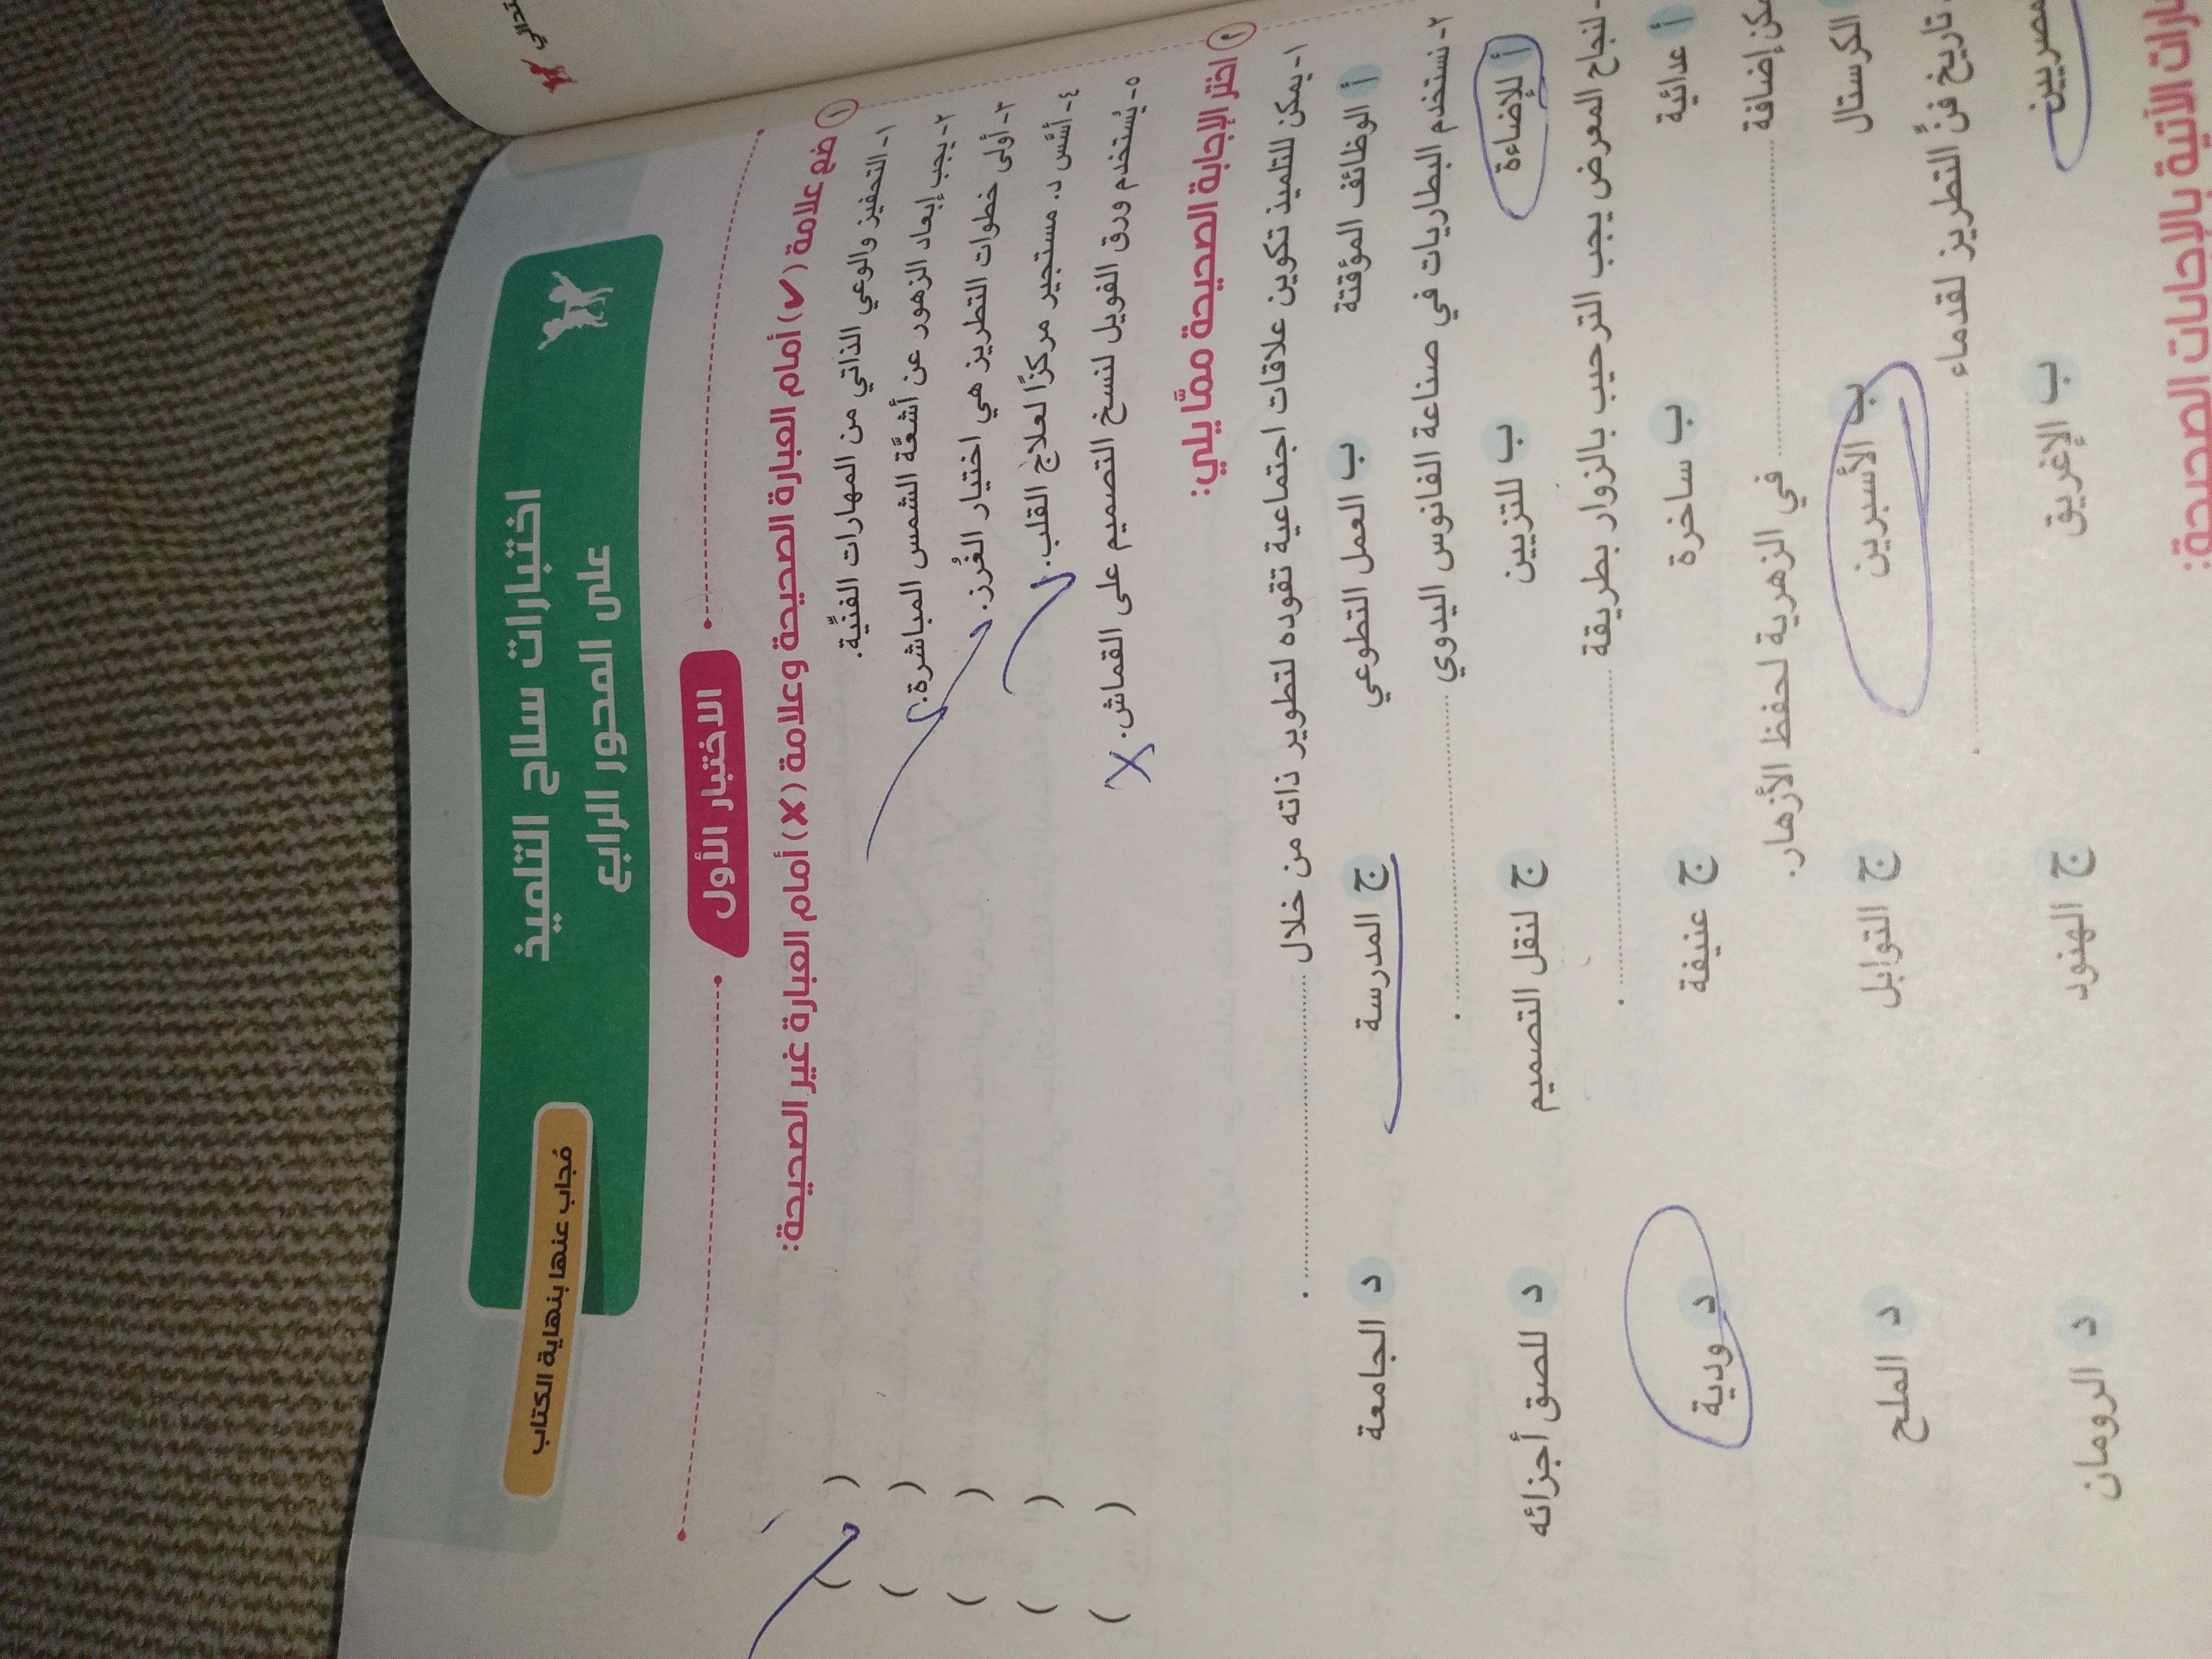 اختبارات سلاح التلميذ
على المحور الرابع
مُجاب عنها بنهاية الكتاب
الاختبار الأول
١ ضع علامة (✓) أمام العبارة الصحيحة وعلامة (✗) أمام العبارة غير الصحيحة:
١- التحفيز والوعي الذاتي من المهارات الفنِّية. ( )
٢- يجب إبعاد الزهور عن أشعَّة الشمس المباشرة. ( )
٣- أولى خطوات التطريز هي اختيار الغُرز. ( )
٤- أسَّس د. مستجير مركزًا لعلاج القلب. ( )
٥- يُستخدم ورق الفويل لنسخ التصميم على القماش. ( )
X
٢ اختر الإجابة الصحيحة ممَّا يلي:
١- يمكن للتلميذ تكوين علاقات اجتماعية تقوده لتطوير ذاته من خلال ........................ .
أ الوظائف المؤقتة ب العمل التطوعي ج المدرسة د الجامعة
٢- نستخدم البطاريات في صناعة الفانوس اليدوي ........................ .
أ للإضاءة ب للتزيين ج لنقل التصميم د للصق أجزائه
- لنجاح المعرض يجب الترحيب بالزوار بطريقة ........................ .
أ عدائية ب ساخرة ج عنيفة د ودية
إضافة ........................ في الزهرية لحفظ الأزهار.
الكرستال ب الأسبرين ج التوابل د الملح
تاريخ فنِّ التطريز لقدماء ........................ .
ب الإغريق ج الهنود د الرومان
الآتية بالإجابات الصحيحة: